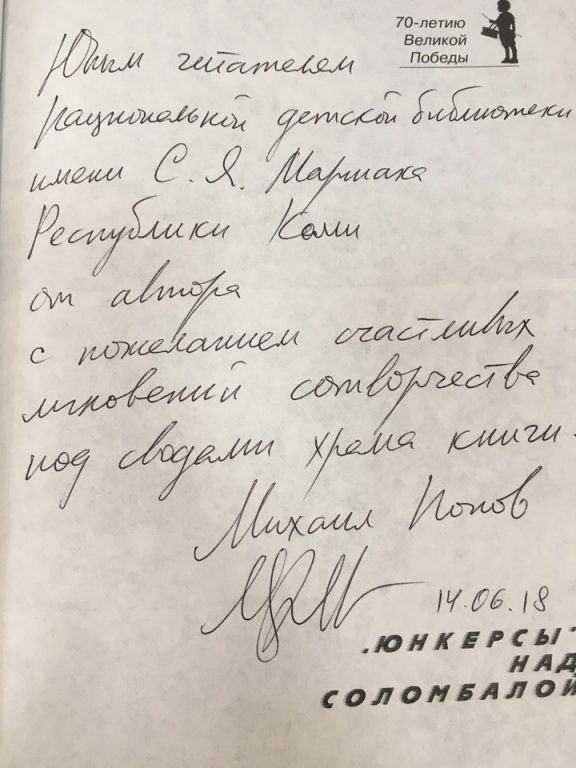 70-летию
Великой
Победы
Юным читателям
национальной детской библиотеки
имени С. Я. Маршака
Республики Коми
от автора
с пожеланием счастливых
мгновений сотворчества
под сводами храма книги.
Михаил Попов
14.06.18
.ЮНКЕРСЫ"
НАД
СОЛОМБАЛОЙ